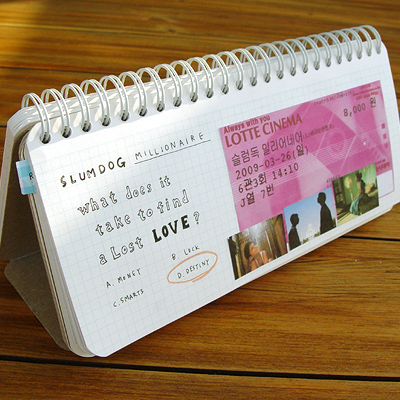 SLUMDOG MILLIONAIRE
what does it
take to find
a Lost LOVE?
A. MONEY
B. LUCK
C. SMARTS
D. DESTINY
Always with you
LOTTE CINEMA
8,000 원
슬럼독 밀리어네어
2009-03-26(일)
6관3회 14:10
J열 7번
R